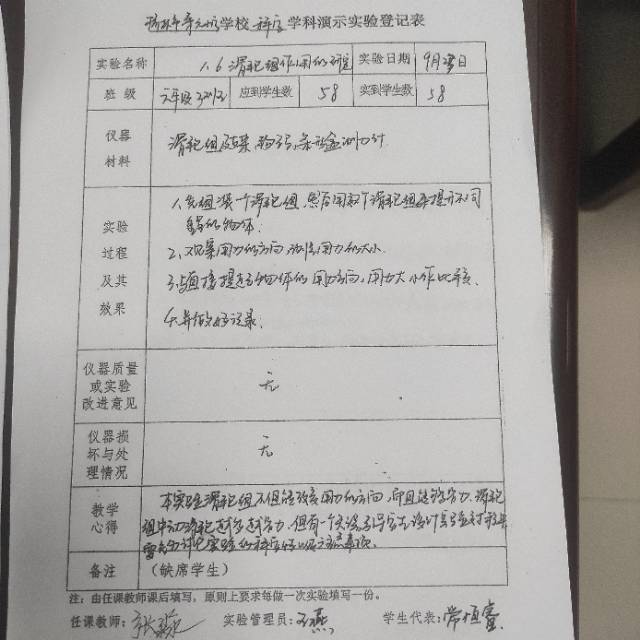 学校 科学 学科演示实验登记表
实验名称 1.6 滑轮组作用的研究 实验日期 9月 日
班 级 六年级 应到学生数 58 实到学生数 58
仪器
材料
滑轮组 支架,钩码,条形盒测力计
实验
过程
及其
效果
1.先组装一个滑轮组,然后用这个滑轮组来提升不同
重量的物体.
2.观察用力的方向,用力的大小.
3.与直接提起物体的用力方向,用力大小作比较.
4.并做好记录.
仪器质量
或实验
改进意见
无
仪器损
坏与处
理情况
无
教学
心得
本实验滑轮组不但能改变用力的方向,而且能够省力.滑轮
组中动滑轮 省力,但有一个
实验的 注意事项.
备注 (缺席学生)
注:由任课教师课后填写,原则上要求每做一次实验填写一份。
任课教师: 张 实验管理员: 王燕 学生代表: 常恒